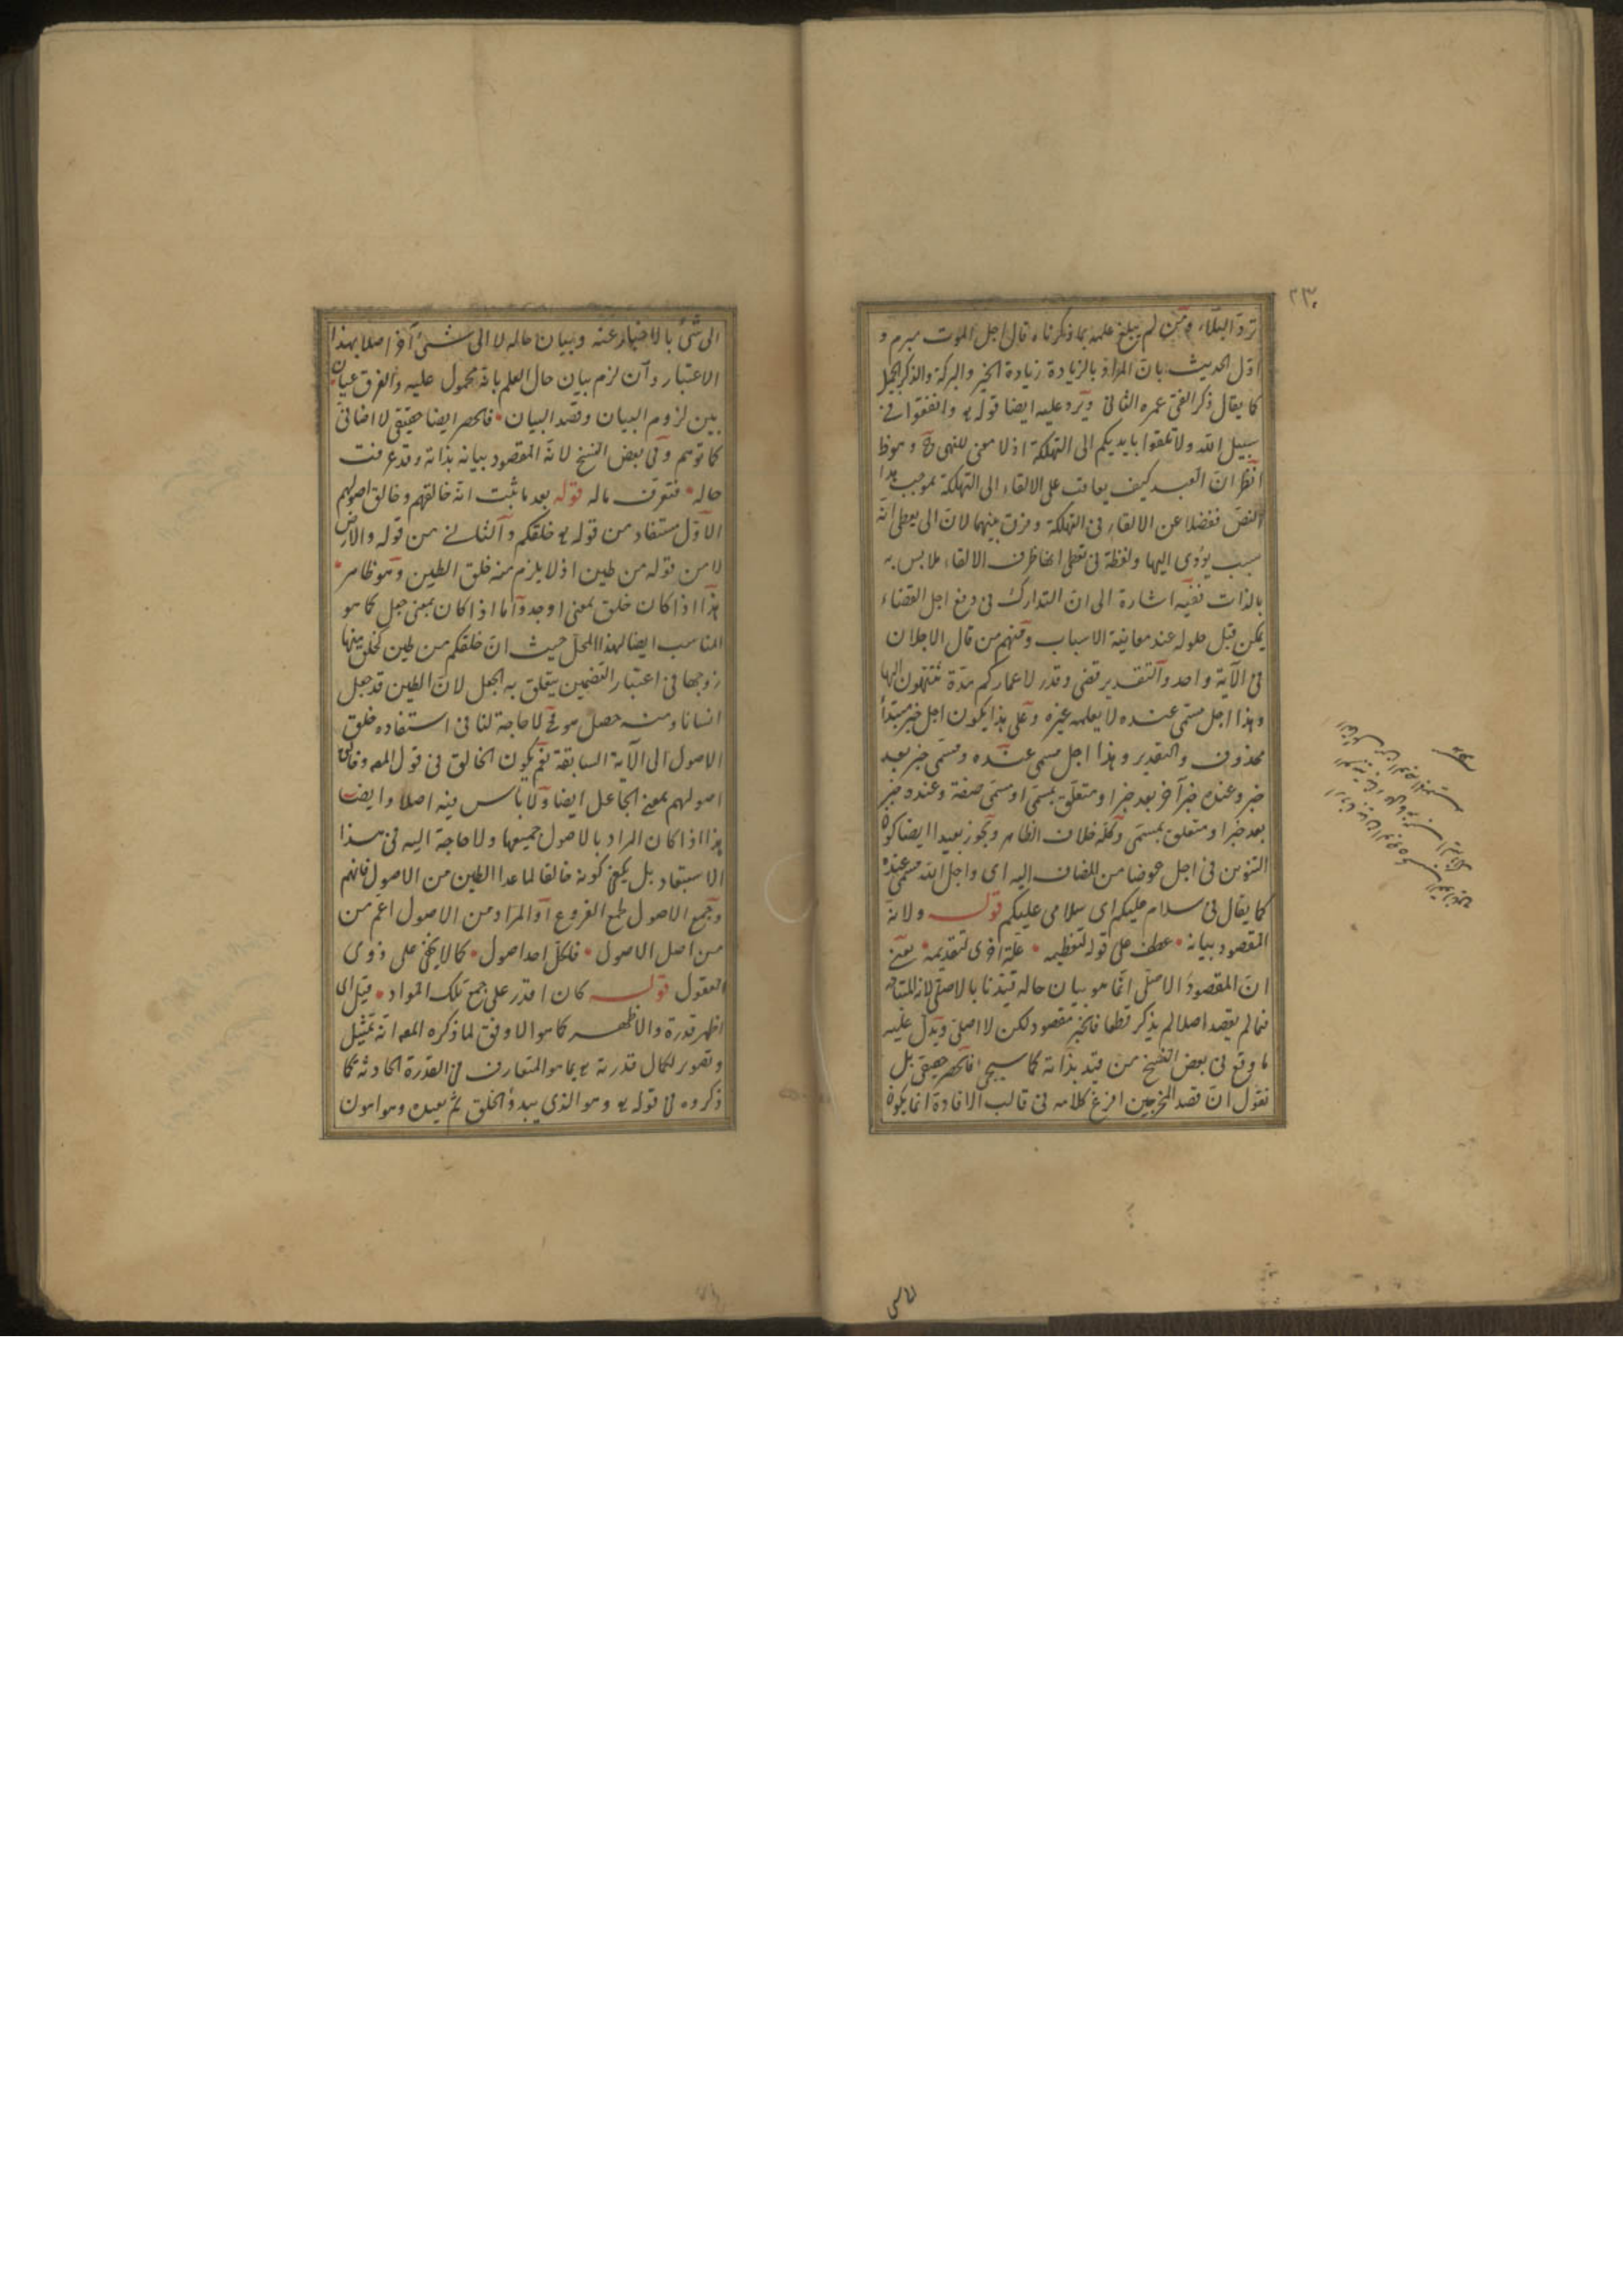 تردّ البلاء ومن لم يبلغ علمه بما ذكرناه قال اجل الموت مبرم و
اوّل الحديث بان المراد بالزيادة زيادة الخير والبركة والذكر الجميل
كما يقال ذكر الفتى عمره الثانى ويرد عليه ايضا قوله تع وانفقوا فى
سبيل الله ولا تلقوا بايديكم الى التهلكة اذ لا معنى للنهى ح وهو ظ
انظر انّ العبد كيف يعاقب على الالقاء الى التهلكة بموجب هذا
النصّ فضلا عن الالقاء فى التهلكة وفرق بينهما لان الى يعطى انه
سبب يؤدى اليها ولفظة فى تعطى انها ظرف الالقاء ملابس به
بالذات ففيه اشارة الى انّ التدارك فى دفع اجل القضاء
يمكن قبل حلوله عند معاينة الاسباب ومنهم من قال الاجلان
فى الآية واحد والتقدير قضى وقدر لاعماركم مدّة تنتهون اليها
وهذا اجل مسمّى عنده لا يعلمه غيره وعلى هذا يكون اجل خبر مبتدأ
محذوف والتقدير وهذا اجل مسمى عنده ومسمّى خبر بعد
خبر وعنده خبر آخر بعد خبر او متعلّق بمسمّى او مسمّى صفة وعنده خبر
بعد خبر او متعلق بمسمّى وكلّه خلاف الظاهر ويجوز بعيدا ايضا كون
التنوين فى اجل عوضا من المضاف اليه اى واجل الله مسمى عنده
كما يقال فى سلام عليكم اى سلامى عليكم قوله ولانه
المقصود بيانه عطف على قوله لتعظيمه علة اخرى لتقديمه يعنى
انّ المقصود الاصلى انّما هو بيان حاله قيّدنا بالاصلى لانه
فما لم يقصد اصلا لم يذكر قطعا فالخبر مقصود لكن لا اصلىّ ويدلّ عليه
ما وقع فى بعض النسخ من قيد بذاته كما سيجى فالحصر حقيقى بل
نقول انّ قصد افرغ كلامه فى قالب الافادة انما يكون
الى شئ بالاخبار عنه وببيان حاله لا الى شئ آخر اصلا بهذا
الاعتبار وان لزم بيان حال العلم بانه محمول عليه والفرق عيان
بين لزوم البيان وقصد البيان فالحصر ايضا حقيقى لا اضافىّ
كما توهم وفى بعض النسخ لانه المقصود بيانه بذاته وقد عرفت
حاله فتعرف ماله قوله بعد ما ثبت انه خالقهم وخالق اصولهم
الاوّل مستفاد من قوله تع خلقكم والثانى من قوله والارض
لا من قوله من طين اذ لا يلزم منه خلق الطين وهو ظاهر
هذا اذا كان خلق بمعنى اوجد وامّا اذا كان بمعنى جعل كما هو
المناسب ايضا لهذا المحلّ حيث انّ خلقكم من طين كخلق منها
زوجها فى اعتبار التضمين يتعلق به الجعل لان الطين قد جعل
انسانا ومنه حصل هو فح لا حاجة لنا فى استفاده خلق
الاصول الى الآية السابقة نعم يكون الخالق فى قول المص وخالق
اصولهم بمعنى الجاعل ايضا ولا باس فيه اصلا وايضا
هذا اذا كان المراد بالاصول جميعها ولا حاجة اليه فى هذا
الاستبعاد بل يكفى كونه خالقا لما عدا الطين من الاصول فافهم
وجمع الاصول لجمع الفروع او المراد من الاصول اعم من
من اصل الاصول فلكلّ احد اصول كما لا يخفى على ذوى
العقول قوله كان اقدر على جمع تلك المواد قيل اى
اظهر قدرة والاظهر كما هو الاوفق لما ذكره المص انه تمثيل
وتصوير لكمال قدرته تع بما هو المتعارف فى القدرة الحادثة كما
ذكروه فى قوله تع وهو الذى يبدؤ الخلق ثم يعيده وهو اهون